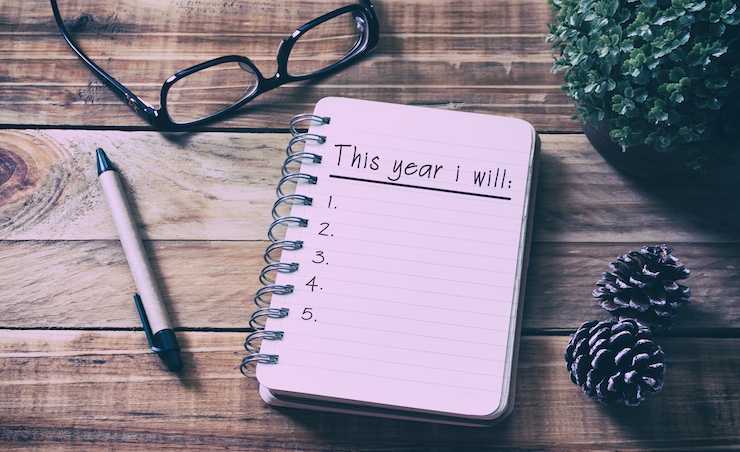 This year i will:
1.
2.
3.
4.
5.